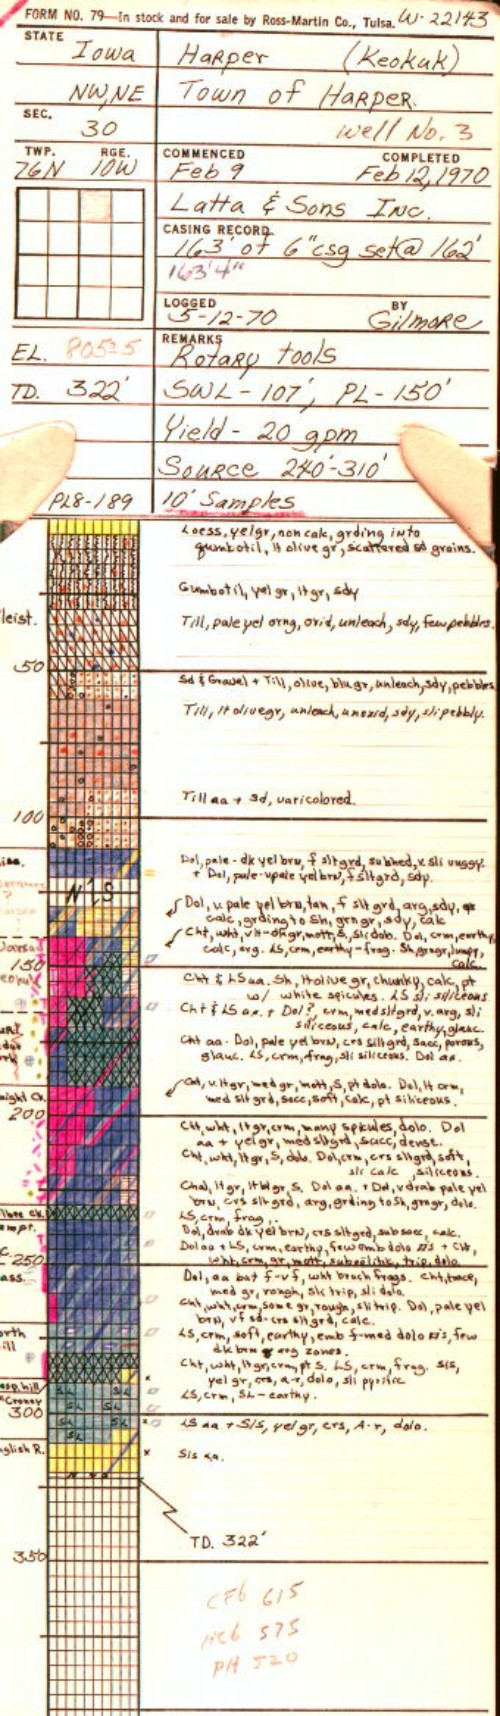 FORM NO. 79—In stock and for sale by Ross-Martin Co., Tulsa. W-22143
STATE
Iowa Harper (Keokuk)
NW, NE Town of Harper
SEC.
30 Well No. 3
TWP. RGE. COMMENCED COMPLETED
76N 10W Feb 9 Feb 12, 1970
Latta & Sons Inc.
CASING RECORD
163' of 6" csg set@ 162'
163'4"
LOGGED BY
5-12-70 Gilmore
REMARKS
EL. Rotary tools
TD. 322' SWL-107', PL-150'
Yield - 20 gpm
Source 240'-310'
PL8-189 10' Samples
Loess, yelgr, non calc, grding into
gumbotil, lt olive gr, scattered sd grains.
Gumbotil, yel gr, ltgr, sdy
leist. Till, pale yel orng, oxid, unleach, sdy, few pebbles.
50
Sd & Gravel + Till, olive, blugr, unleach, sdy, pebbles
Till, lt olivegr, unleach, unoxid, sdy, sli pebbly.
Till aa + sd, varicolored.
100
Dol, pale-dk yel brn, f sltgrd, subhed, v sli vuggy
+ Dol, pale-v pale yel brn, f sltgrd, sdy.
N'S
Dol, v pale yel brn, tan, f slt grd, arg, sdy,
calc, grding to Sh, grngr, sdy, calc
Cht, wht, vlt-dkgr, mott, S, sli dolo. Dol, crm, earthy,
calc, arg. LS, crm, earthy-frag. Sh, grngr, lumpy,
calc.
150
Cht & LS aa. Sh, lt olive gr, chunky, calc, pt
w/ white spicules. LS sli siliceous
Cht & LS aa. + Dol? crm, med sltgrd, v. arg, sli
siliceous, calc, earthy, glauc.
Cht aa. Dol, pale yel brn, crs sltgrd, sacc, porous,
glauc. LS, crm, frag, sli siliceous. Dol aa.
Cht, v. ltgr, med gr, mott, S, pt dolo. Dol, lt crm,
med slt grd, sacc, soft, calc, pt siliceous.
200
Cht, wht, ltgr, crm, many spicules, dolo. Dol
aa + yelgr, med sltgrd, sacc, dense.
Cht, wht, ltgr, S, dolo. Dol, crm, crs sltgrd, soft,
sli calc, siliceous.
Chal, ltgr, ltblgr, S. Dol aa. + Dol, v drab pale yel
brn, crs slt grd, arg, grding to Sh, grngr, dolo.
LS, crm, frag.
Dol, drab dk yel brn, crs sltgrd, sub sacc, calc.
Dol aa + LS, crm, earthy, few emb dolo xls + Cht,
wht, crm, gr, mott, suboolitic, trip, dolo.
250
Dol, aa but f-vf, wht brach frags. Cht, trace,
med gr, rough, slt trip, sli dolo.
Cht, wht, crm, some gr, rough, sli trip. Dol, pale yel
brn, vf sd-crs sltgrd, calc.
LS, crm, soft, earthy, emb f-med dolo xls, few
dk brn arg zones.
Cht, wht, ltgr, crm, pt S. LS, crm, frag. Sls,
yel gr, crs, a-r, dolo, sli pyritic
LS, crm, SL-earthy.
SL
300
LS aa + Sls, yel gr, crs, A-r, dolo.
nglish R. Sls aa.
TD. 322'
350
CFb 615
575
PH 520